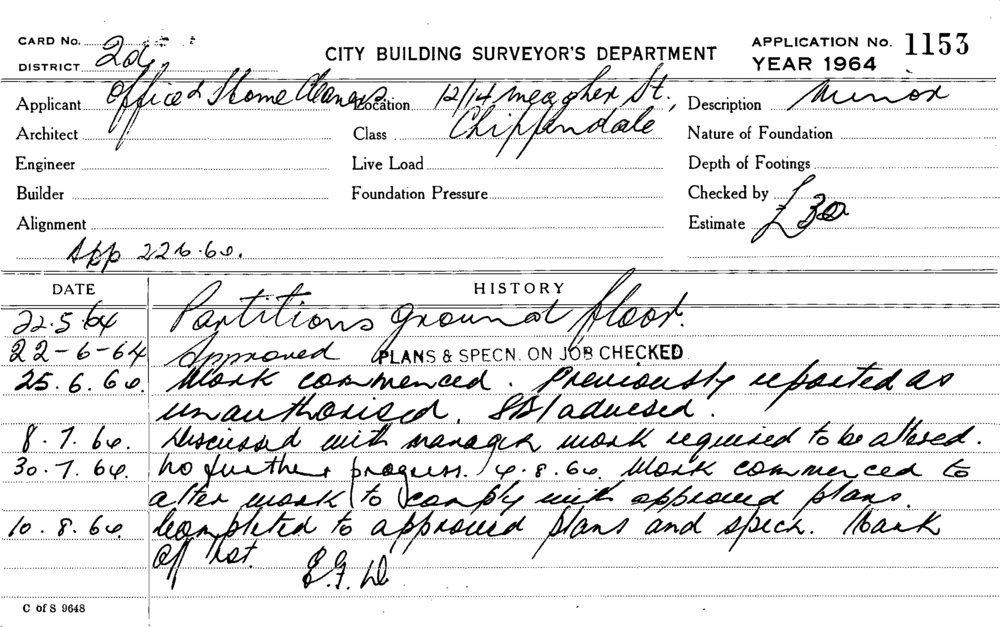 CARD No.
DISTRICT 2d,
CITY BUILDING SURVEYOR'S DEPARTMENT
APPLICATION No. 1153
YEAR 1964
Applicant Office & Home Cleaners
Location 12/14 Meagher St., Chippendale
Description Minor
Architect
Class
Nature of Foundation
Engineer
Live Load
Depth of Footings
Builder
Foundation Pressure
Checked by
Alignment
Estimate £30
App 22.6.64.
DATE
HISTORY
22.5.64 Partitions ground floor.
22-6-64 Approved PLANS & SPECN. ON JOB CHECKED
25.6.64. Work commenced. Previously reported as
unauthorised. advised.
8.7.64. Discussed with manager work required to be altered.
30.7.64. No further progress. 4.8.64. Work commenced to
alter work to comply with approved plans.
10.8.64. Completed to approved plans and specn. Mark
off list.
C of S 9648